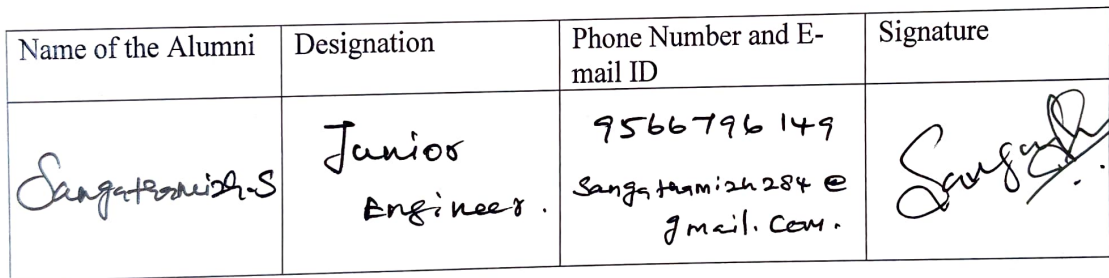 Name of the Alumni
Designation
Phone Number and E-
mail ID
Signature
Sangathamizh.S
Junior
Engineer.
9566796149
Sangathamizh284@
gmail.com.